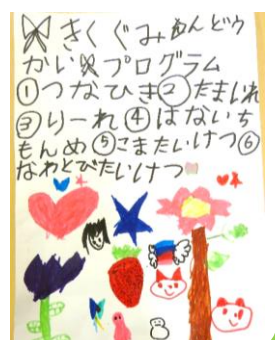 きくぐみ うんどう
かい プログラム
①つなひき②たまいれ
③りーれ④はないち
もんめ⑤こまたいけつ⑥
なわとびたいけつ